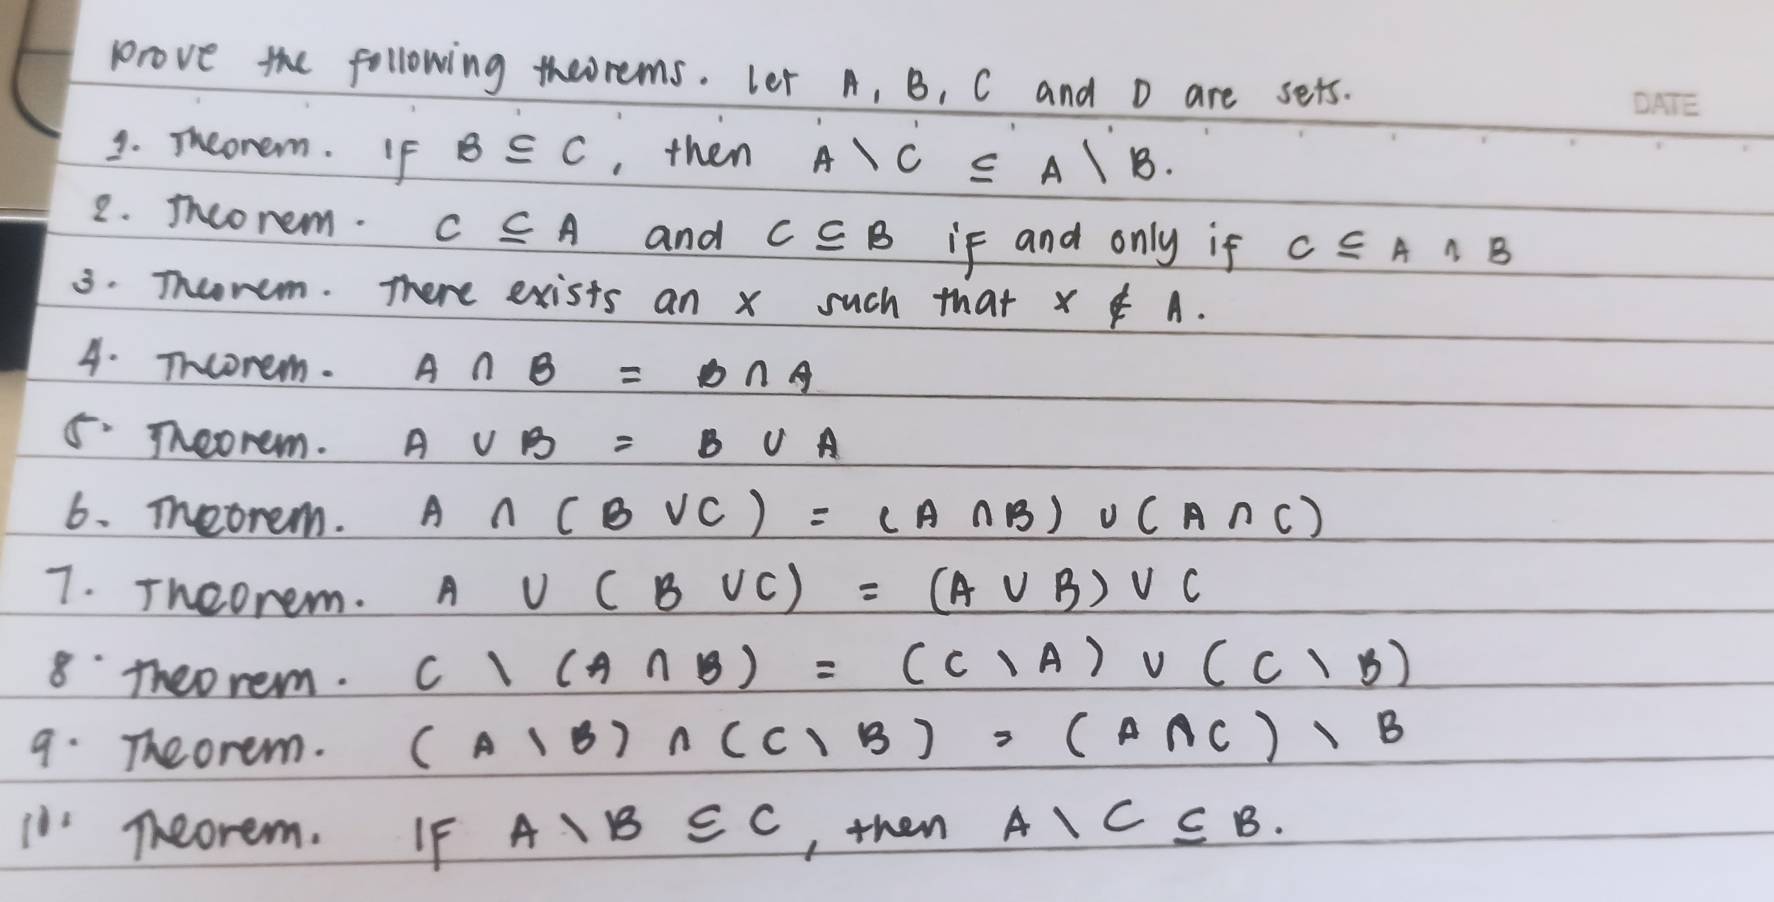 Prove the following theorems. Let A, B, C and D are sets.
DATE
1. Theorem. If B ⊆ C, then A \ C ⊆ A \ B.
2. Theorem. C ⊆ A and C ⊆ B if and only if C ⊆ A ∩ B
3. Theorem. There exists an x such that x ∉ A.
4. Theorem. A ∩ B = B ∩ A
5. Theorem. A ∪ B = B ∪ A
6. Theorem. A ∩ (B ∪ C) = (A ∩ B) ∪ (A ∩ C)
7. Theorem. A ∪ (B ∪ C) = (A ∪ B) ∪ C
8. Theorem. C \ (A ∩ B) = (C \ A) ∪ (C \ B)
9. Theorem. (A \ B) ∩ (C \ B) = (A ∩ C) \ B
10. Theorem. If A \ B ⊆ C, then A \ C ⊆ B.